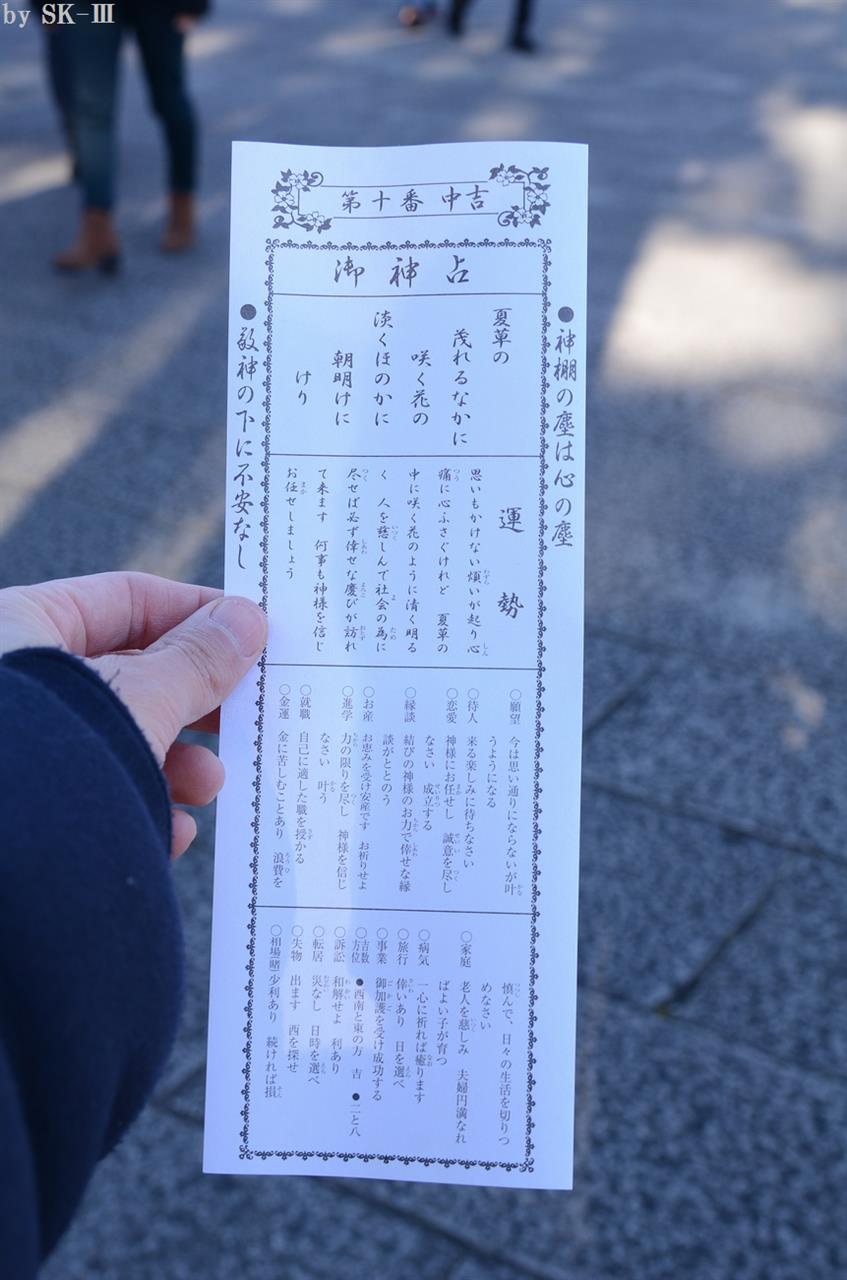 by SK-Ⅲ
第十番 中吉
御神占
●神棚の塵は心の塵
夏草の
茂れるなかに
咲く花の
淡くほのかに
朝明けに
けり
運勢
思いもかけない煩いが起り心
痛に心ふさぐけれど 夏草の
中に咲く花のように清く明る
く 人を慈しんで社会の為に
尽せば必ず倖せな慶びが訪れ
て来ます 何事も神様を信じ
お任せしましょう
○願望 今は思い通りにならないが叶
うようになる
○待人 来る楽しみに待ちなさい
○恋愛 神様にお任せし 誠意を尽し
なさい 成立する
○縁談 結びの神様のお力で倖せな縁
談がととのう
○お産 お恵みを受け安産です お祈りせよ
○進学 力の限りを尽し 神様を信じ
なさい 叶う
○就職 自己に適した職を授かる
○金運 金に苦しむことあり 浪費を
慎んで、日々の生活を切りつ
めなさい
○家庭 老人を慈しみ 夫婦円満なれ
ばよい子が育つ
○病気 一心に祈れば癒ります
○旅行 倖いあり 日を選べ
○事業 御加護を受け成功する
○吉数方位 ●西南と東の方 吉 ●二と八
○訴訟 和解せよ 利あり
○転居 災なし 日時を選べ
○失物 出ます 西を探せ
○相場(賭) 少利あり 続ければ損
●敬神の下に不安なし